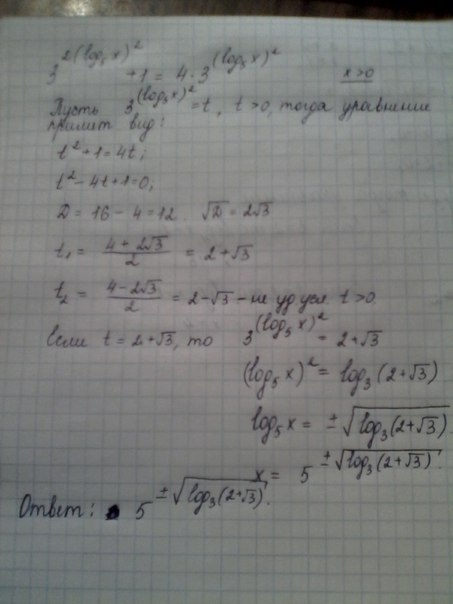 3^{2(log₅x)²} + 1 = 4·3^{(log₅x)²}    x>0
Пусть 3^{(log₅x)²} = t, t>0, тогда уравнение
примет вид:
t²+1=4t;
t²-4t+1=0;
D = 16 - 4 = 12. √D = 2√3
t₁ = (4+2√3)/2 = 2+√3
t₂ = (4-2√3)/2 = 2-√3 - не уд усл. t>0.
Если t = 2+√3, то 3^{(log₅x)²} = 2+√3
(log₅x)² = log₃(2+√3)
log₅x = ±√(log₃(2+√3))
x = 5^{±√(log₃(2+√3))}.
Ответ: 5^{±√(log₃(2+√3))}.